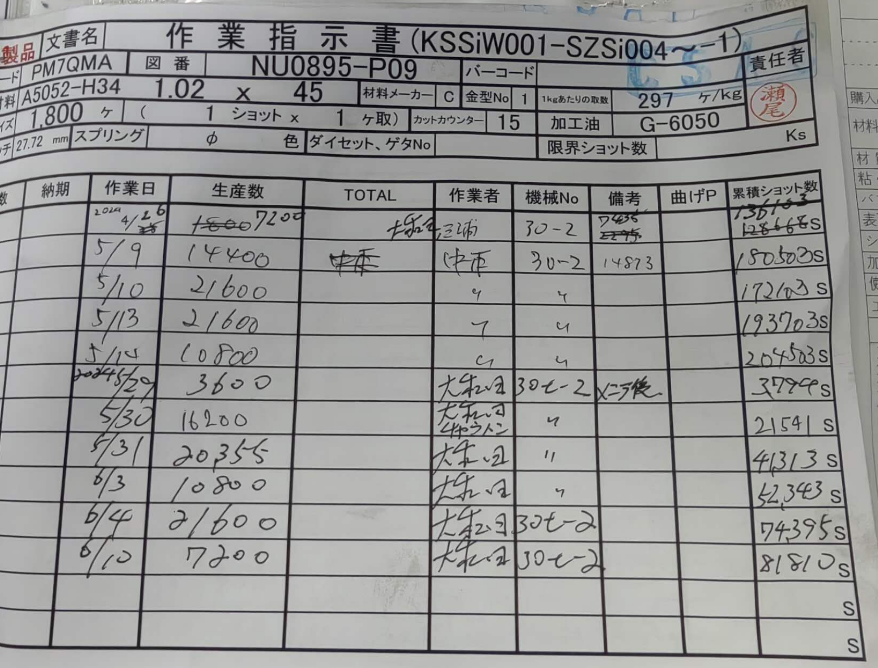 製品 文書名 作業指示書(KSSiW001-SZSi004～-1)
ード PM7QMA 図番 NU0895-P09 バーコード 責任者
料 A5052-H34 1.02 x 45 材料メーカー C 金型No 1 1kgあたりの取数 297 ケ/kg 瀬尾
イズ 1,800 ケ ( 1 ショット x 1 ケ取) カットカウンター 15 加工油 G-6050
チ 27.72 mm スプリング φ 色 ダイセット、ゲタNo 限界ショット数 Ks
数 納期 作業日 生産数 TOTAL 作業者 機械No 備考 曲げP 累積ショット数
2024 4/26 7200 三浦 30-2 7435 136103 S
5/9 14400 30-2 14873 S
5/10 21600 〃 〃 172103 S
5/13 21600 〃 〃 193703 S
5/14 10800 〃 〃 204503 S
2024 5/29 3600 30t-2 メニテ後 S
5/30 16200 〃 21541 S
5/31 20,355 〃 41,313 S
6/3 10800 〃 52,343 S
6/4 21600 30t-2 74,395 S
6/10 7200 30t-2 81810 S
S
S
購入
材料
材
粘
バ
表
シ
加